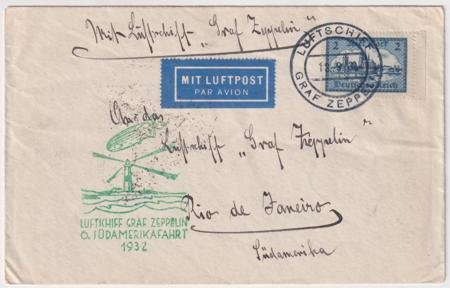 Mit Luftschiff „Graf Zeppelin"
LUFTSCHIFF
GRAF ZEPPELIN
2 2
Deutsches Reich
MIT LUFTPOST
PAR AVION
An das
Luftschiff „Graf Zeppelin"
Rio de Janeiro
Südamerika
LUFTSCHIFF GRAF ZEPPELIN
6. SÜDAMERIKAFAHRT
1932